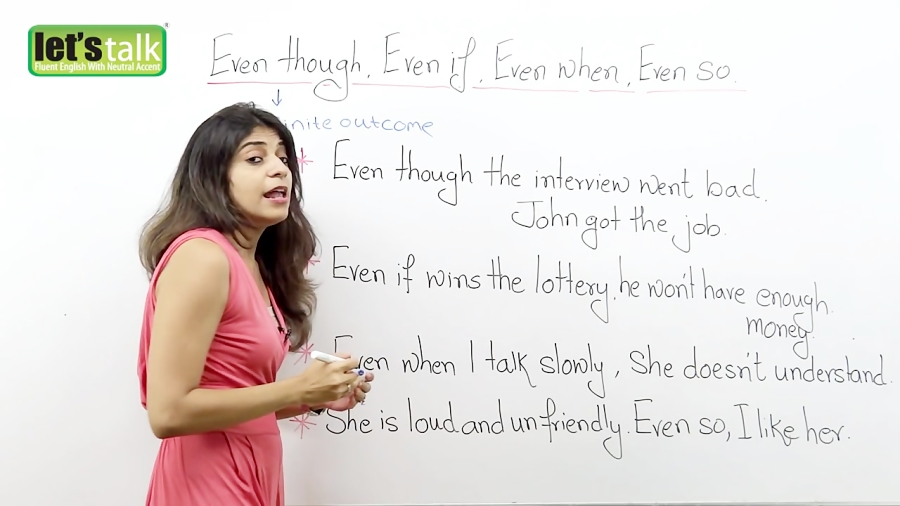 let's talk
Fluent English With Neutral Accent
Even though, Even if, Even when, Even so.
inite outcome
Even though the interview went bad.
John got the job.
Even if wins the lottery, he won't have enough
money.
Even when I talk slowly, She doesn't understand.
She is loud and unfriendly. Even so, I like her.